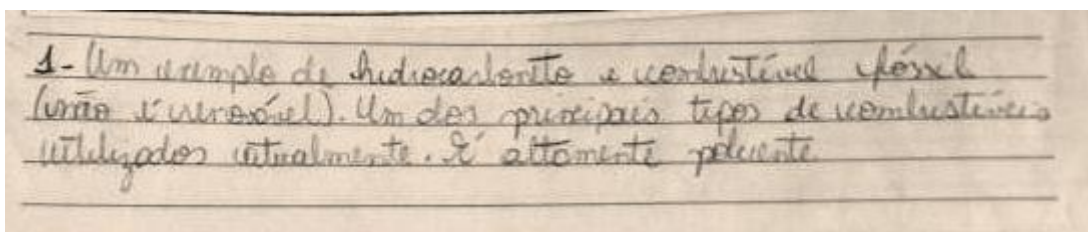 1- Um exemplo de hidrocarboneto e combustível fóssil
(não é renovável). Um dos principais tipos de combustíveis
utilizados atualmente. É altamente poluente